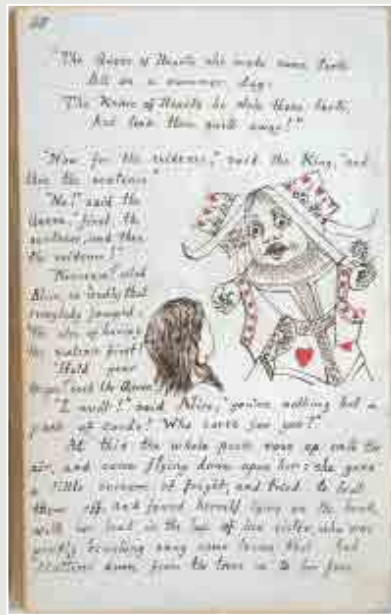 "The Queen of Hearts she made some tarts
All on a summer day:
The Knave of Hearts he stole those tarts,
And took them quite away!"
"Now for the evidence," said the King, "and
then the sentence."
"No!" said the
Queen, "first the
sentence, and then
the evidence!"
"Nonsense!" cried
Alice, so loudly that
everybody jumped,
"the idea of having
the sentence first!"
"Hold your
tongue!" said the Queen.
"I won't!" said Alice, "you're nothing but a
pack of cards! Who cares for you?"
At this the whole pack rose up into the
air, and came flying down upon her: she gave
a little scream of fright, and tried to beat
them off, and found herself lying on the bank,
with her head in the lap of her sister, who was
gently brushing away some leaves that had
fluttered down from the trees on to her face.